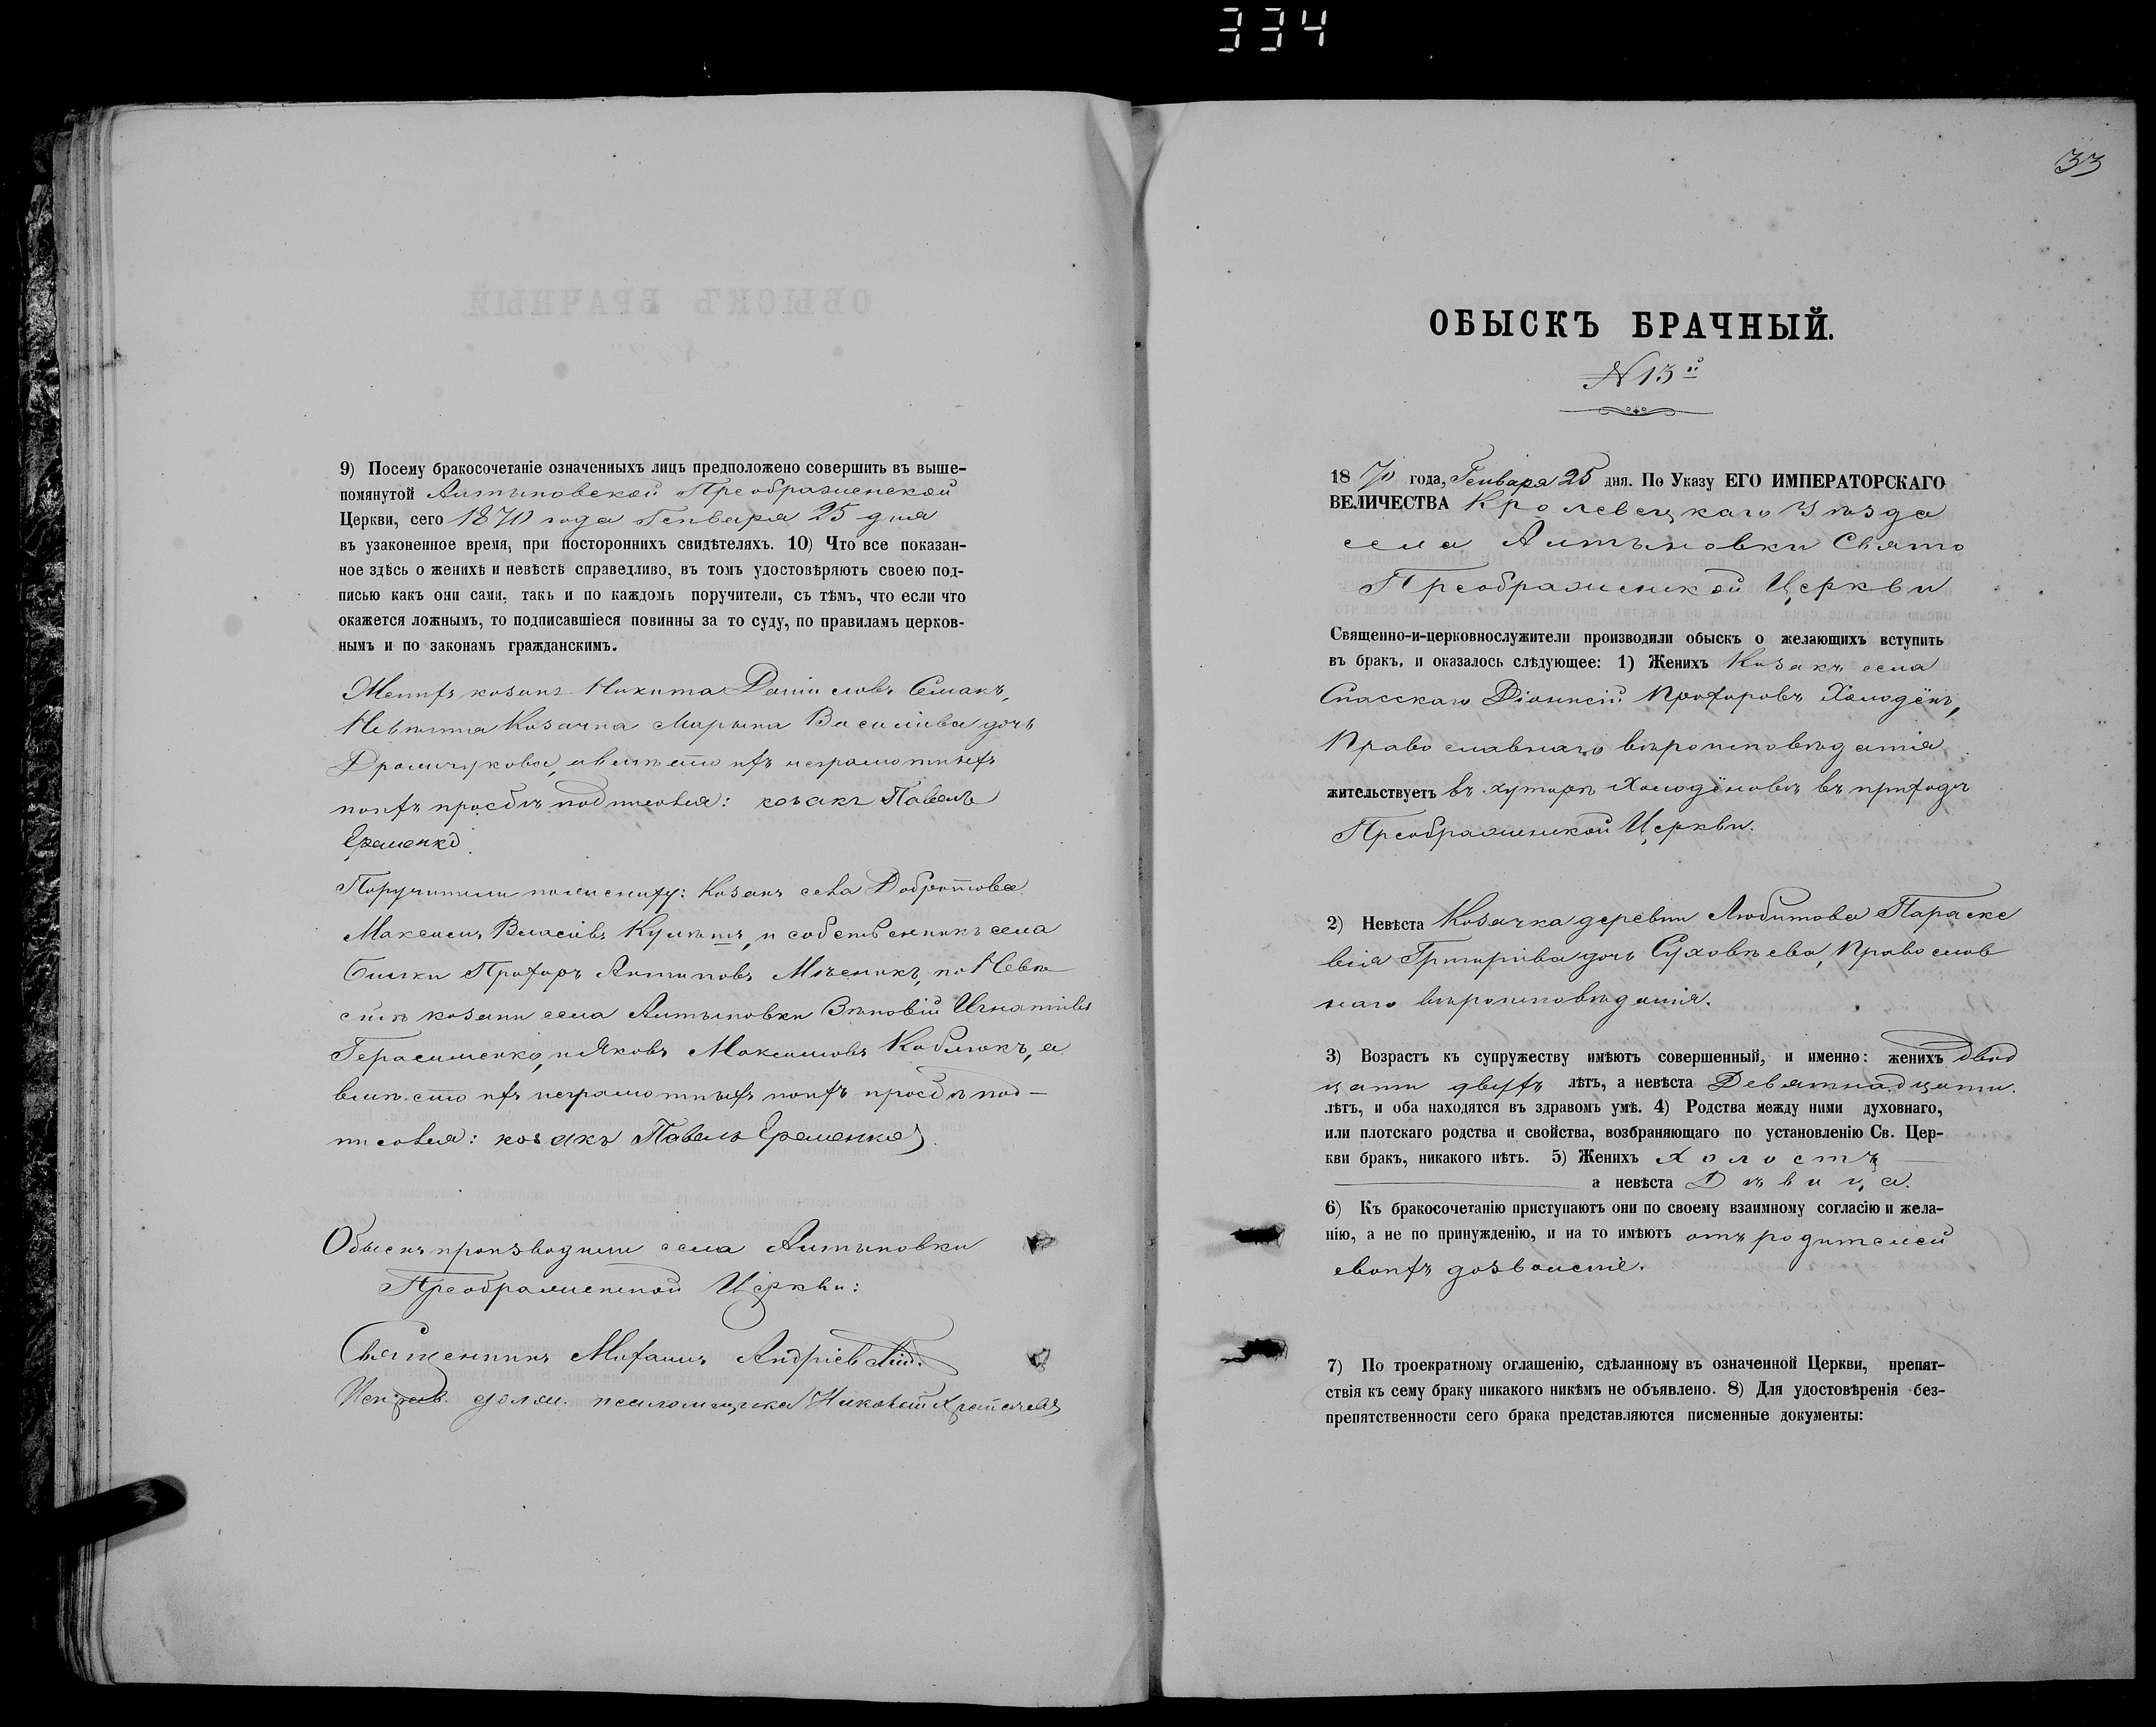 334
9) Посему бракосочетаніе означенныхъ лицъ предположено совершить въ выше-
помянутой Алтыновской Преображенской
Церкви, сего 1870 года Генваря 25 дня
въ узаконенное время, при постороннихъ свидѣтеляхъ. 10) Что все показан-
ное здѣсь о женихѣ и невѣстѣ справедливо, въ томъ удостовѣряютъ своею под-
писью какъ они сами, такъ и по каждомъ поручители, съ тѣмъ, что если что
окажется ложнымъ, то подписавшіеся повинны за то суду, по правиламъ церков-
нымъ и по законамъ гражданскимъ.
Женихъ козакъ Никита Даніиловъ Семакъ,
Невѣста Козачка Марѳина Василіева дочь
а вмѣсто ихъ неграмотныхъ
поихъ прозбѣ подписовся: козакъ Павелъ
Ерменко
Поручители пожениху: Козакъ села Добротова
Максимъ Власіевъ и собственникъ села
Билки Прохоръ Антиповъ поНевѣ
стѣ козаки села Алтыновки Зѣновій Игнатіевъ
Герасименко, и Яковъ Максимовъ Коблюкъ, а
вмѣсто ихъ неграмотныхъ поихъ прозбѣ под-
писовся: козакъ Павелъ Ерменко
Обыскъ производили села Алтыновки
Преображенской Церкви:
Священникъ Михаилъ Андріев
Исправ. долж. псаломщика Николай
33
ОБЫСКЪ БРАЧНЫЙ.
N 13й
1870 года, Генваря 25 дня. По Указу ЕГО ИМПЕРАТОРСКАГО
ВЕЛИЧЕСТВА Кролевецкаго Уѣзда
села Алтыновки Свято
Преображенской Церкви
Священно-и-церковнослужители производили обыскъ о желающихъ вступить
въ бракъ, и оказалось слѣдующее: 1) Женихъ Козакъ села
Спасскаго Діонисій Прохоровъ Холодёнъ,
Православнаго вѣроисповѣданія
жительствуетъ въ хуторѣ Холодёновѣ въ приходѣ
Преображенской Церкви.
2) Невѣста Козачка деревни Любитова Параске
вія Григоріева дочь Суховѣева, Православ
наго вѣроисповѣданія.
3) Возрастъ къ супружеству имѣютъ совершенный, и именно: женихъ двад
цати двухъ лѣтъ, а невѣста Девятнадцати.
лѣтъ, и оба находятся въ здравомъ умѣ. 4) Родства между ними духовнаго,
или плотскаго родства и свойства, возбраняющаго по установленію Св. Цер-
кви бракъ, никакого нѣтъ. 5) Женихъ холостъ
а невѣста Дѣвица.
6) Къ бракосочетанію приступаютъ они по своему взаимному согласію и жела-
нію, а не по принужденію, и на то имѣютъ отъ родителей
своихъ дозволеніе.
7) По троекратному оглашенію, сдѣланному въ означенной Церкви, препят-
ствія къ сему браку никакого никѣмъ не объявлено. 8) Для удостовѣренія без-
препятственности сего брака представляются писменные документы: